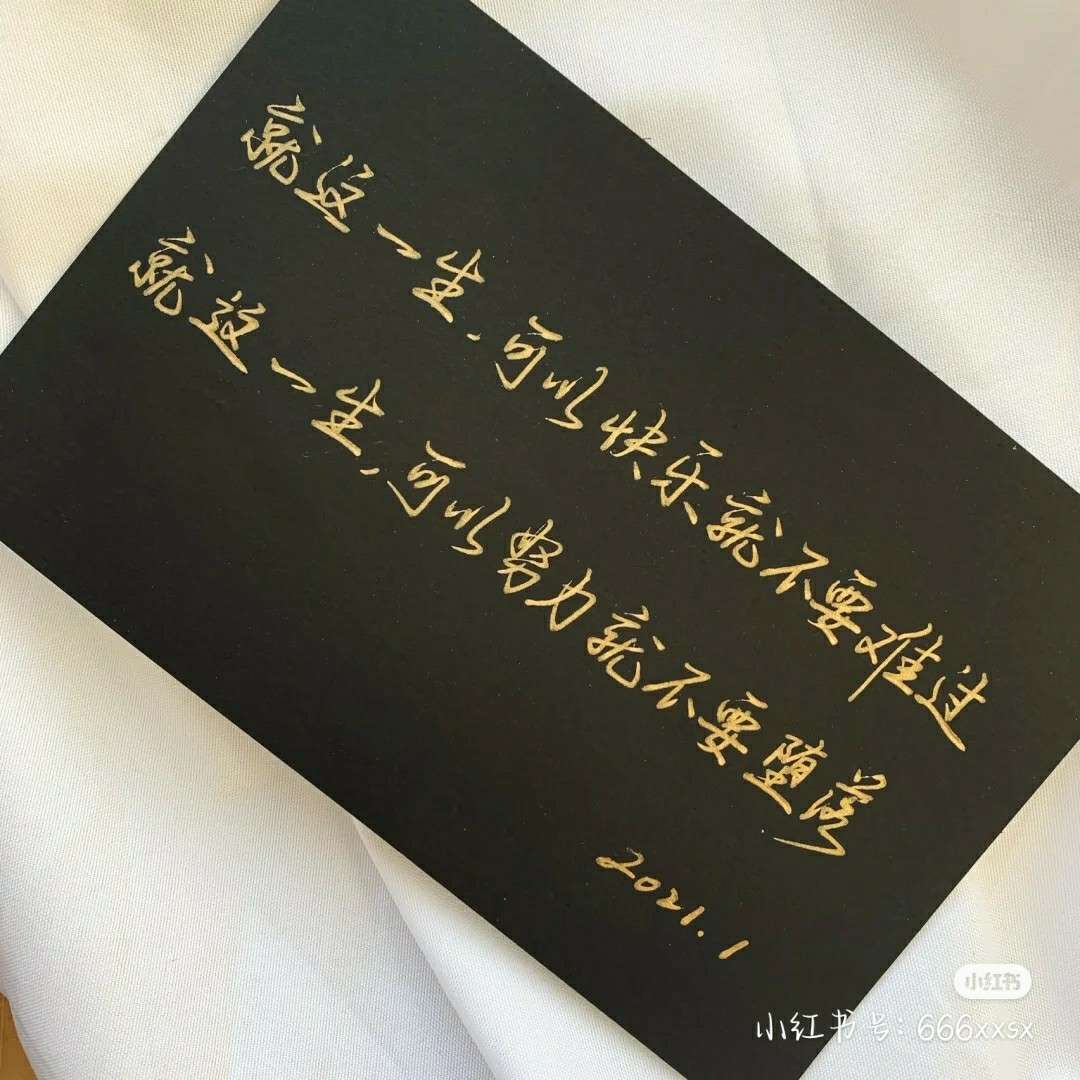 就这一生,可以快乐就不要难过
就这一生,可以努力就不要堕落
2021.1
小红书
小红书号:666xxsx